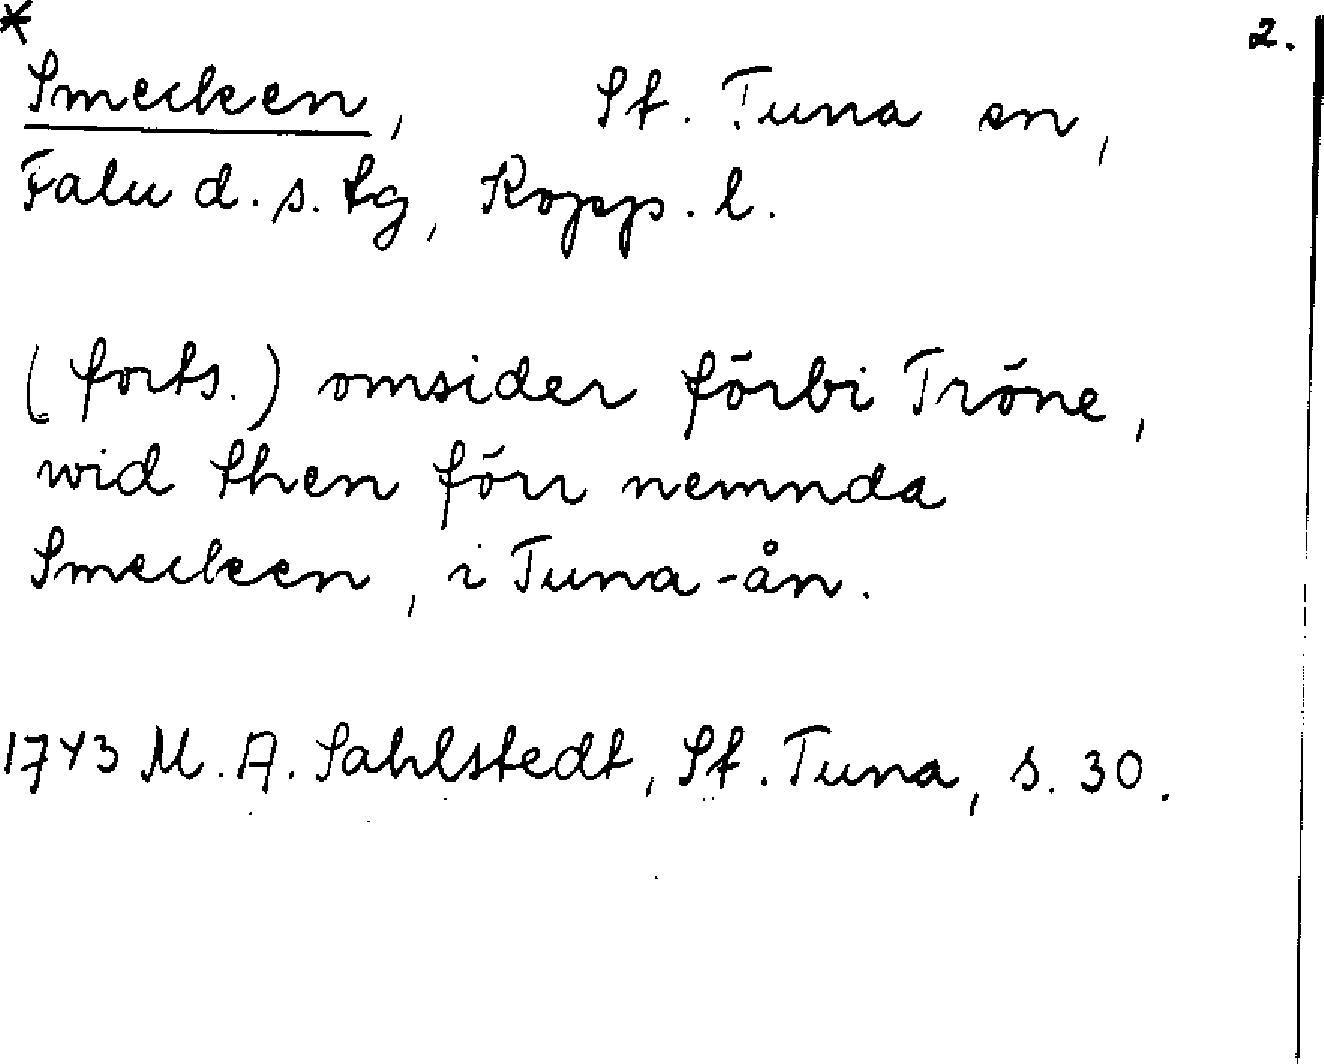 * 2.
Smecken, St. Tuna sn,
Falu d. s. tg, Kopp. l.
(forts.) omsider förbi Tröne,
wid then förr nemnda
Smecken, i Tuna-ån.
1743 M. A. Sahlstedt, St. Tuna, s. 30.